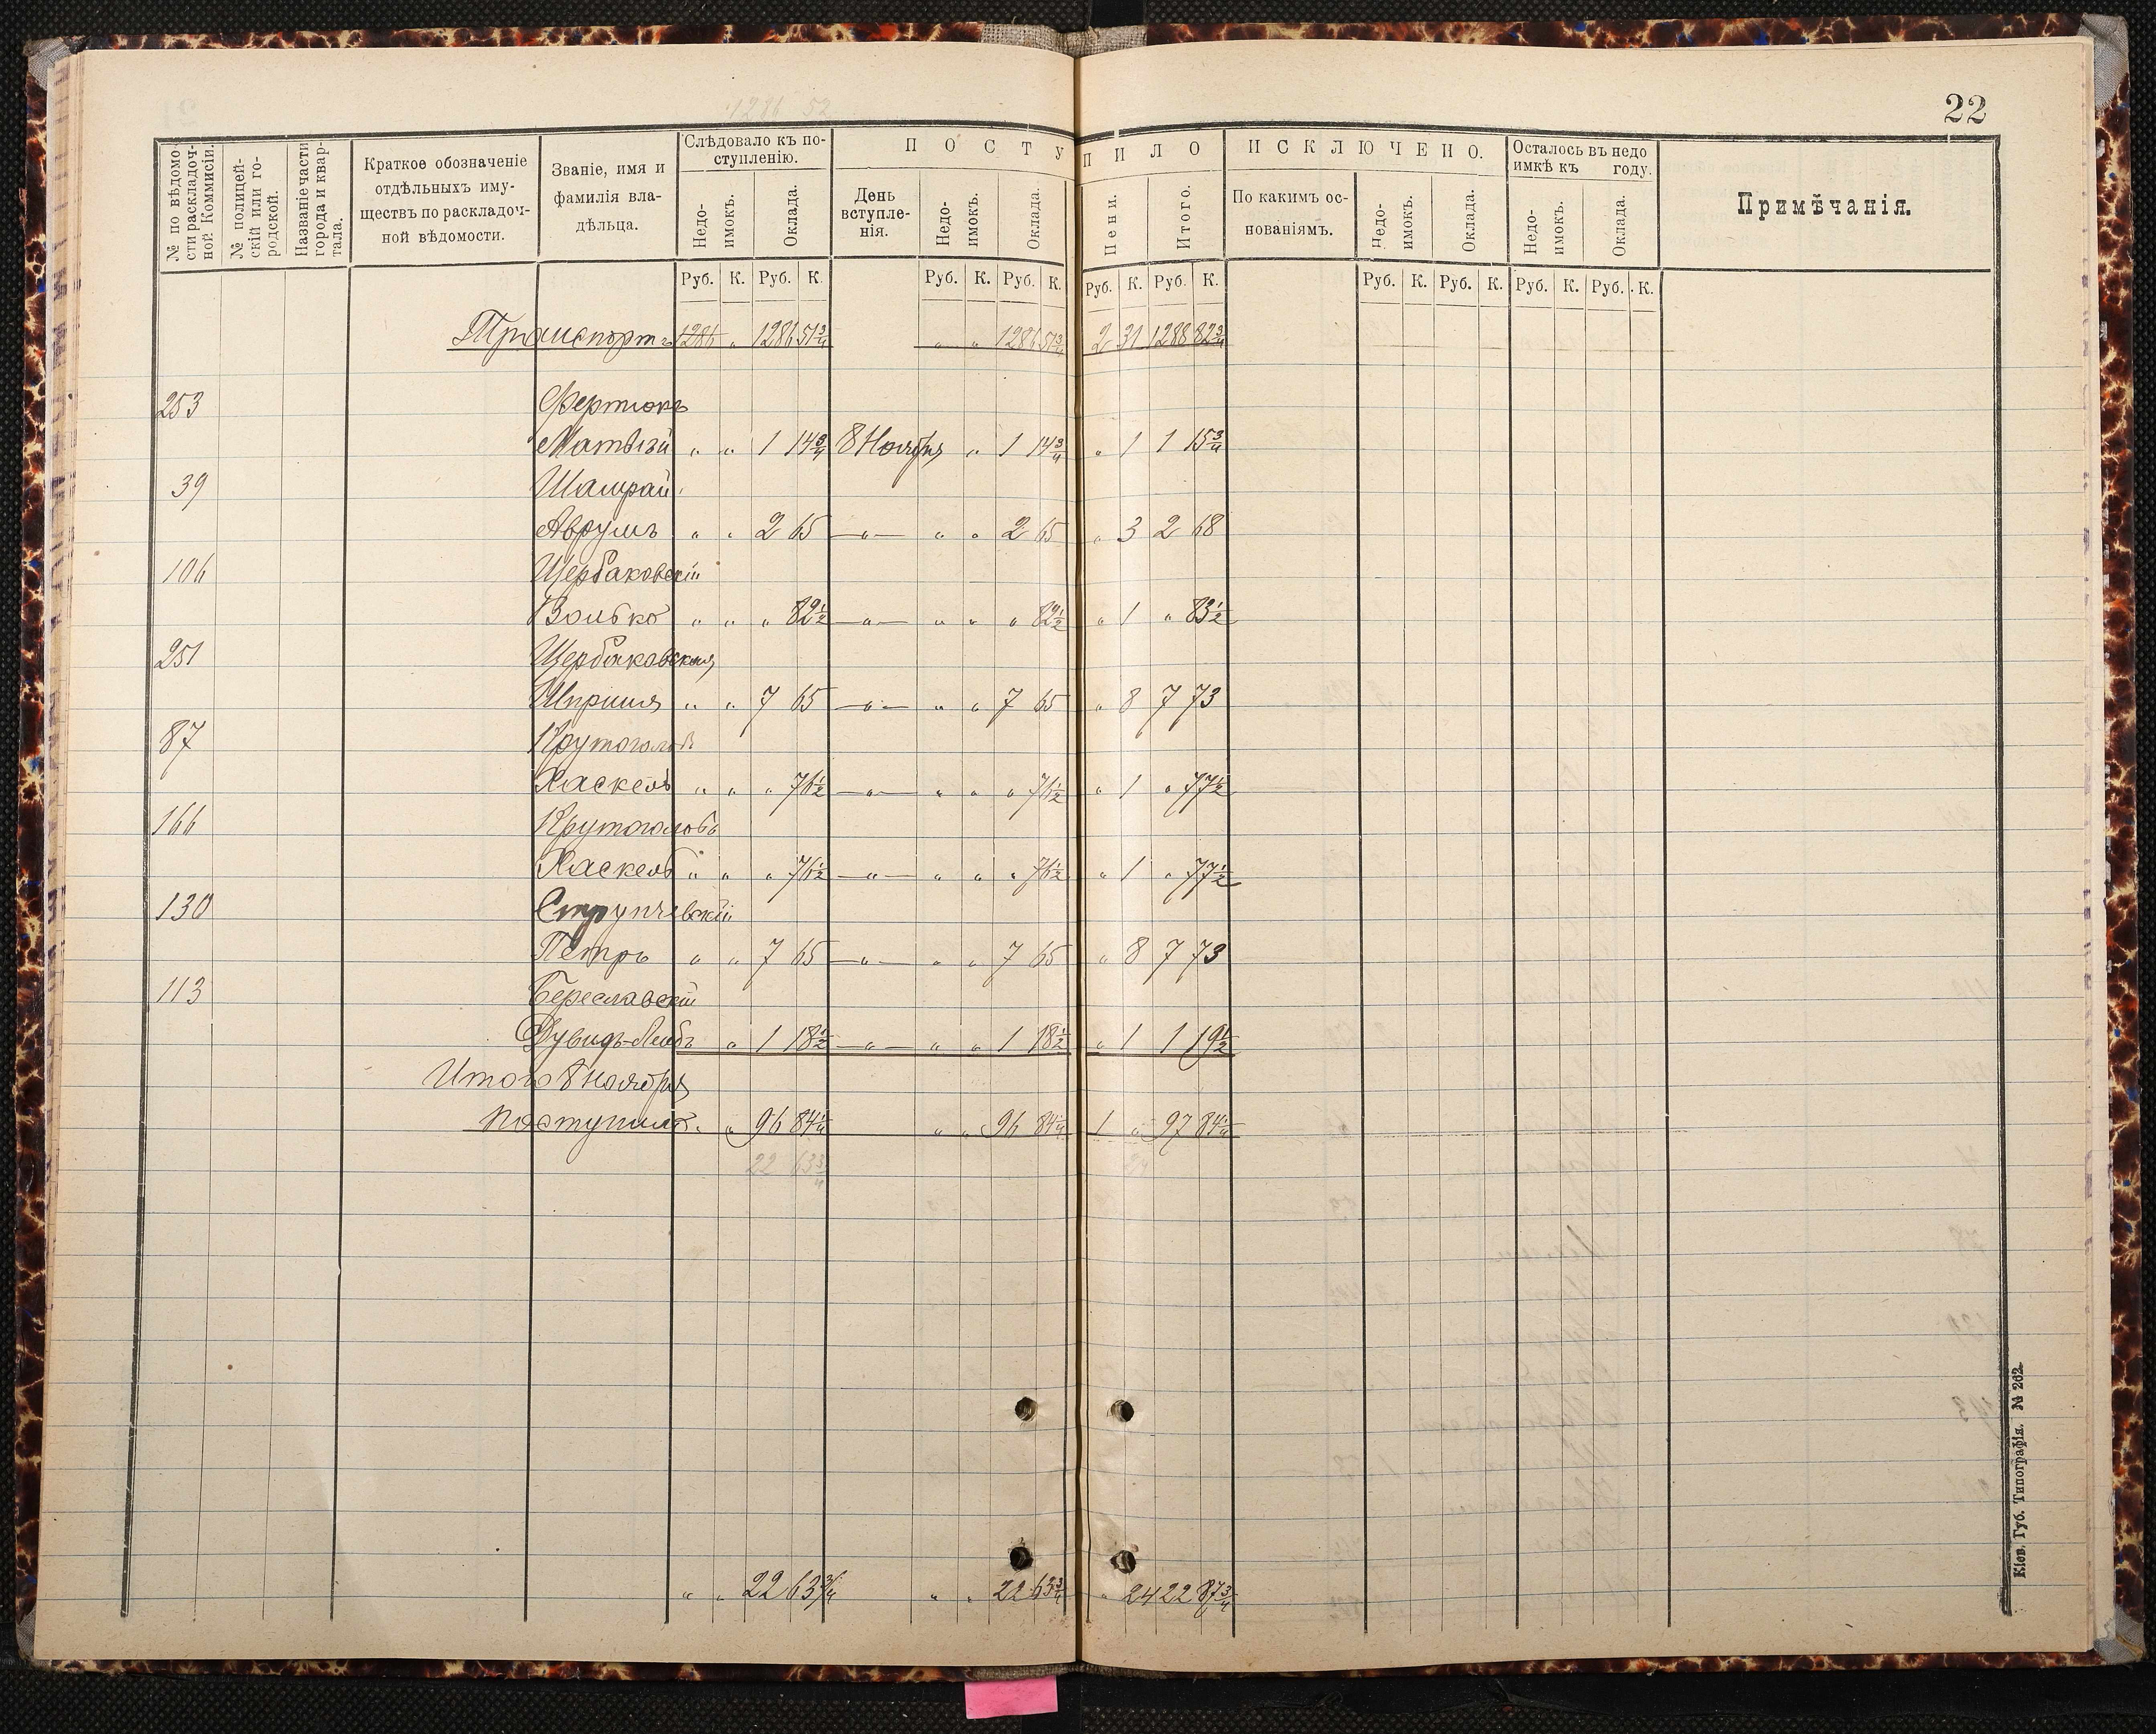 1286 52
22
№ по вѣдомости раскладочной Коммисіи.
№ полицейскій или городской.
Названіе части города и квартала.
Краткое обозначеніе отдѣльныхъ имуществъ по раскладочной вѣдомости.
Званіе, имя и фамилія владѣльца.
Слѣдовало къ поступленію.
Недоимокъ.
Оклада.
ПОСТУПИЛО
День вступленія.
Недоимокъ.
Оклада.
Пени.
Итого.
ИСКЛЮЧЕНО.
По какимъ основаніямъ.
Недоимокъ.
Оклада.
Осталось въ недоимкѣ къ году.
Недоимокъ.
Оклада.
Примѣчанія.
Руб. К. Руб. К. Руб. К. Руб. К. Руб. К. Руб. К. Руб. К. Руб. К. Руб. К. Руб. К.
Транспортъ 1286 " 1286 51¾ " " 1286 51¾ 2 31 1288 82¾
253 Фертюкъ
Матвѣй " " 1 14¾ 8 Ноября " 1 14¾ " 1 1 15¾
39 Шамрай
Аврумъ " " 2 65 —"— " " 2 65 " 3 2 68
106 Щербаковскій
Волько " " " 82½ —"— " " " 82½ " 1 " 83½
251 Щербаковская
" " 7 65 —"— " " 7 65 " 8 7 73
87 Крутоголовъ
Хаскель " " " 76½ —"— " " " 76½ " 1 " 77½
166 Крутоголовъ
Хаскель " " " 76½ —"— " " " 76½ " 1 " 77½
130
Петръ " " 7 65 —"— " " 7 65 " 8 7 73
113 Береславскій
Дувидъ-Лейбъ " 1 18½ —"— " " 1 18½ " 1 1 19½
Итого 8 ноября
поступило " " 96 84¼ " " 96 84¼ 1 " 97 84¼
22 63¾ 24
" " 22 63¾ " " 22 63¾ " 24 22 87¾
Кіев. Губ. Типографія. № 262.